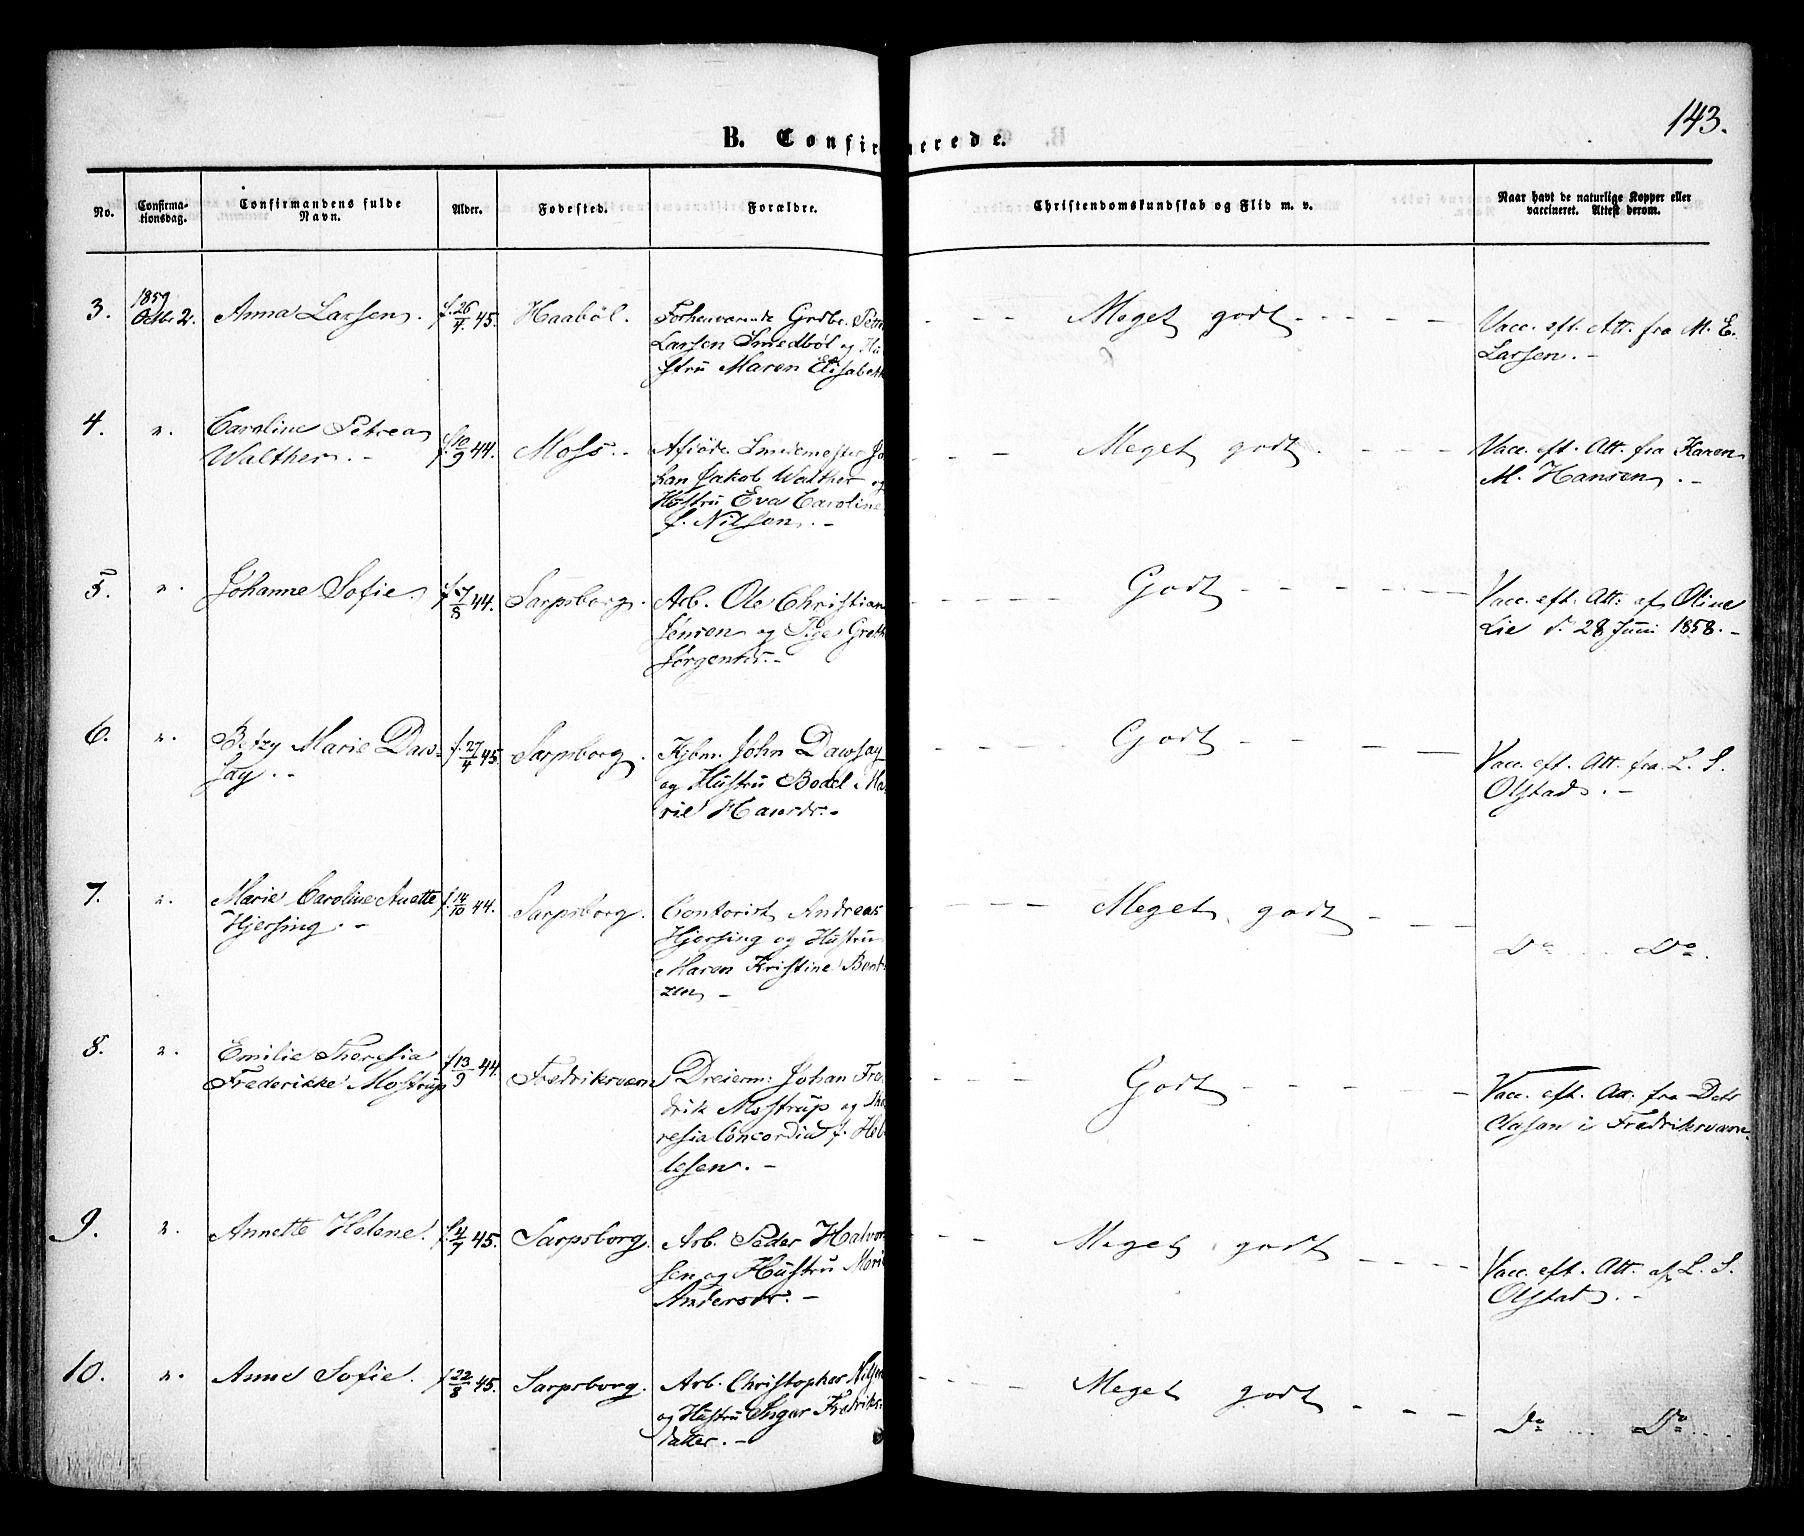 143.
B. Confirmerede.
No.
Confirma-
tionsdag.
Confirmandens fulde
Navn.
Alder.
Fødested.
Forældre.
Christendomskundskab og Flid m. v.
Naar havt de naturlige Kopper eller
vaccineret. Attest derom.
3.
1859
Octbr 2.
Anna Larsen.
f. 26/7. 45.
Haabøl.
Forhenværende Grdbr.
Larsen Smedbøl og Hu-
stru Maren Elisabeth
Meget godt
Vacc. eft. Att. fra M. E.
Larsen.
4.
".
Caroline Petrea
Walther.
f. 10/9 44.
Moss.
Afdøde Smedemester Jo-
han Jakob Walther og
Hustru Eva Caroline
f. Nilsen.
Meget godt.
Vacc. eft. Att. fra Karen
M. Hansen.
5.
".
Johanne Sofie.
f. 7/8 44.
Sarpsborg.
Arb. Ole Christian
Jensen og Pige Grethe
Jørgensd.
Godt
Vacc. eft. Att. af Oline
Lie d. 28 Juni 1858.
6.
".
Betzy Marie Daw-
say.
f. 27/4 45.
Sarpsborg.
Kjbm. John Dawsay
og Hustru Bodel Ma-
rie Hansdr.
Godt
Vacc. eft. Att. fra L. S.
Olstad.
7.
".
Marie Caroline Anette
Hjersing.
f. 14/10 44.
Sarpsborg.
Contorist Andreas
Hjersing og Hustru
Maren Kristine Bent-
zen
Meget godt
Do Do.
8.
".
Emilie Theresia
Frederikke Mostrup
f. 13/9 44.
Fredriksværn
Dreierm. Johan Fre-
drik Mostrup og The-
resia Concordia f. Hel-
lesen.
Godt
Vacc. eft. Att. fra Dokt
Clasan i Fredriksværn.
9.
".
Annette Helene.
f. 4/7 45.
Sarpsborg
Arb. Peder Halvor-
sen og Hustru Mari
Andersdr.
Meget godt
Vacc. eft. Att. af L. S.
Olstad.
10.
".
Anne Sofie.
f. 22/8 45.
Sarpsborg.
Arb. Christopher Nilsen
og Hustru Inger Fredriks-
datter.
Meget godt
Do Do